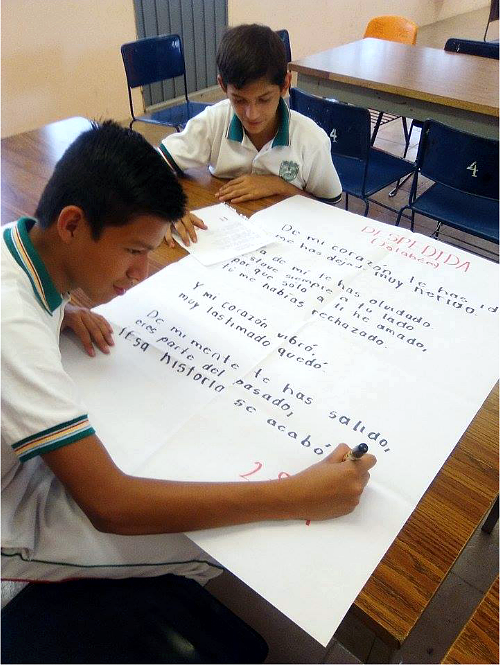 DESPEDIDA
(Jotabea)
De mi corazón te has id
me has dejado muy herido.
de mi te has olvidado
siempre a tu lado
que solo a ti he amado,
tú me habías rechazado.
Y mi corazón vibró,
muy lastimado quedó.
De mi mente te has salido,
eres parte del pasado,
Esa historia se acabó
4
4